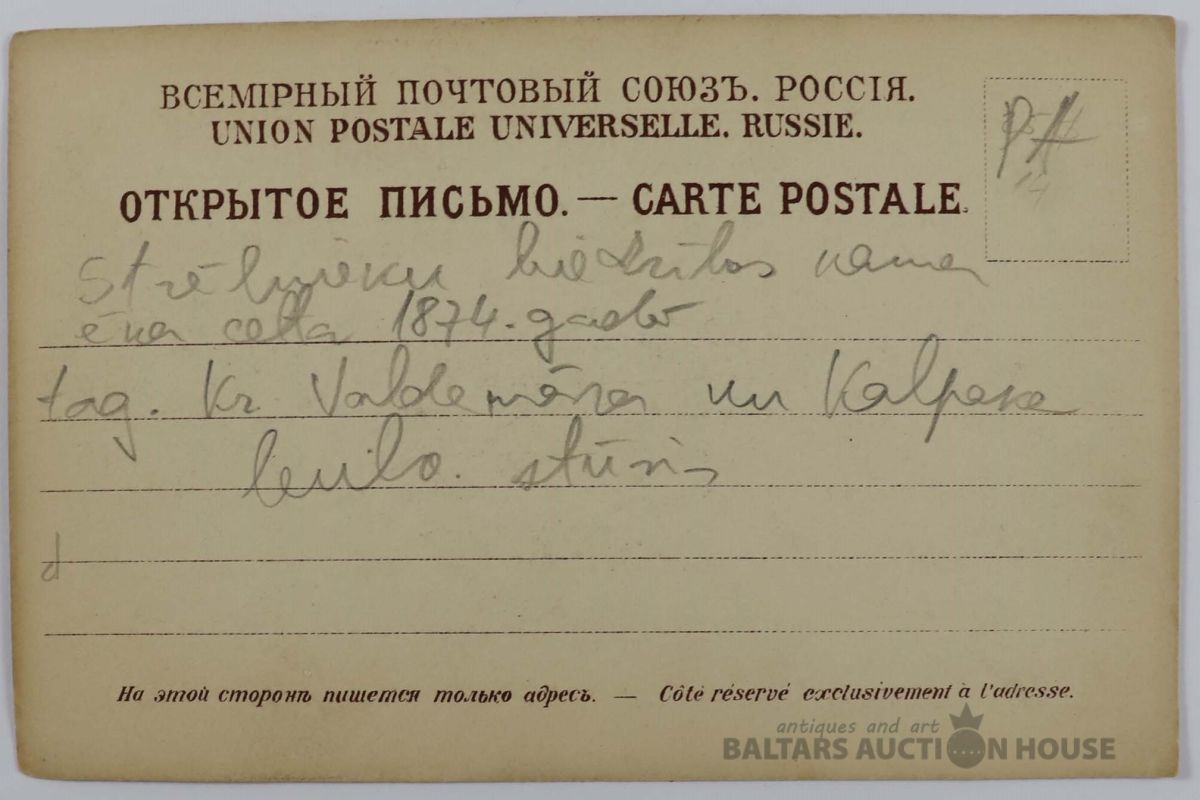 ВСЕМІРНЫЙ ПОЧТОВЫЙ СОЮЗЪ. РОССІЯ.
UNION POSTALE UNIVERSELLE. RUSSIE.
ОТКРЫТОЕ ПИСЬМО. — CARTE POSTALE.
Strēlnieku biedrības nama
ēka celta 1874. gadā
tag. Kr Valdemāra un Kalpaka
bulv. stūris
На этой сторонѣ пишется только адресъ. — Côté réservé exclusivement à l'adresse.
antiques and art
BALTARS AUCTION HOUSE